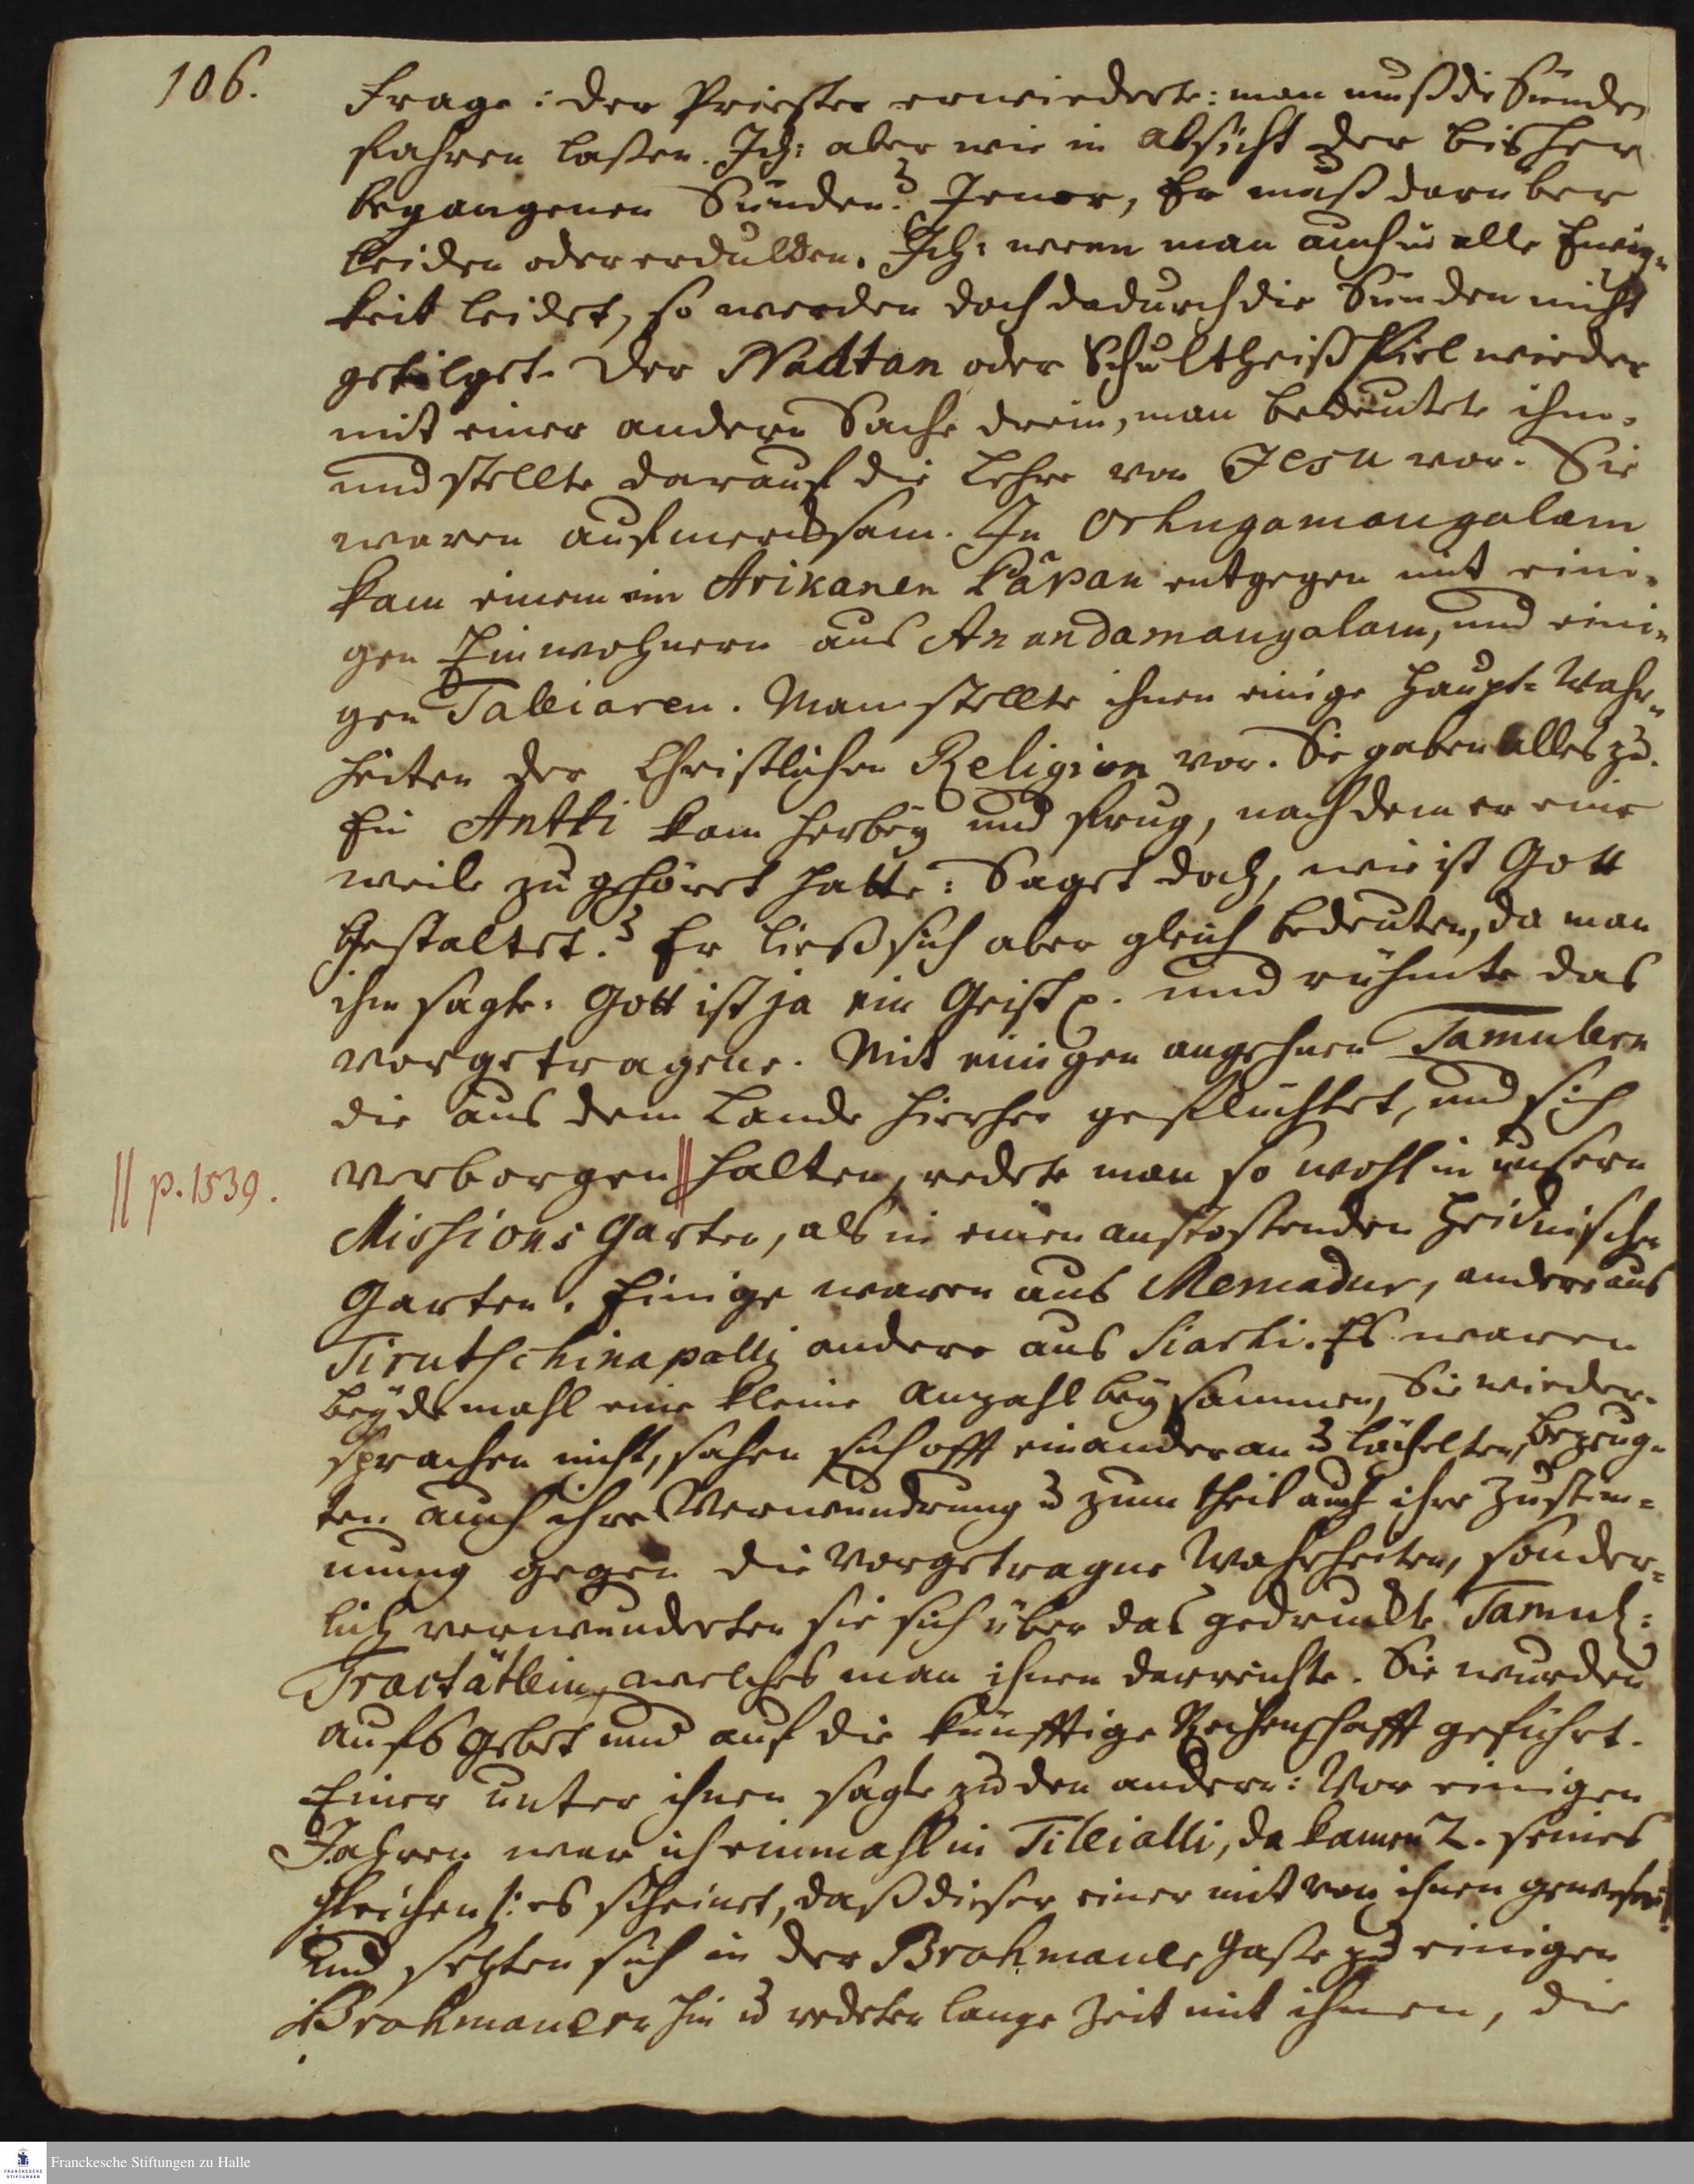 106.
Frage: der Priester erwiederte: man muß die Sünden
fahren laßen. Ich: aber wie in Absicht der bisher
begangenen Sünden? Jener, Er muß darüber
leiden oder erdulden. Ich: wenn man auch in alle Ewig-
keit leidet, so werden doch dadurch die Sünden nicht
getilget. Der Nadtan oder Schultheiß fiel wieder
mit einer andern Sache drein, man bedeutete ihm,
und stellte darauf die Lehre von Jesu vor. Sie
waren aufmercksam. In Orhugamangalam
kam einem ein Arikanen Kâpan entgegen mit eini-
gen Einwohnern aus Anandamangalam, und eini-
gen Talliaren. Man stellte ihnen einige Haupt-Wahr-
heiten der Christlichen Religion vor. Sie gaben alles zu.
Ein Antti kam herbey und frug, nachdem er eine
weile zugehöret hatte: Saget doch, wie ist Gott
gestaltet? Er ließ sich aber gleich bedeuten, da man
ihm sagte: Gott ist ja ein Geist p. und rühmte das
vorgetragene. Mit einigen angesehnen Tamulern
die aus dem Lande hierher geflüchtet, und sich
|| p. 1539.
verborgen || halten, redete man so wohl in unsern
Missions Garten, als in einen anstoßenden Heidnischen
Garten. Einige waren aus Memadur, andere aus
Tirutschinapalli andere aus Siarhi. Es waren
beydemahl eine kleine Anzahl beysammen, Sie wieder-
sprachen nicht, sahen sich offt einander an u lächelten, bezeug-
ten auch ihre Verwundrung u zum theil auch ihre Zustim-
mung gegen die vorgetragne Wahrheiten, sonder-
lich verwunderten sie sich über das gedruckte Tamul:
Tractätlein, welches man ihnen darreichte. Sie wurden
aufs Gebet und auf die künfftige Rechenschafft geführt.
Einer unter ihnen sagte zu den andern: Vor einigen
Jahren war ich einmahl in Tilliali, da kamen 2. seines
gleichen /: es scheinet, daß dieser einer mit von ihnen gewesen :/
und setzten sich in der Brahmaner Gaße zu einigen
Brahmanern hin u redeten lange Zeit mit ihnen, die
Franckesche Stiftungen zu Halle